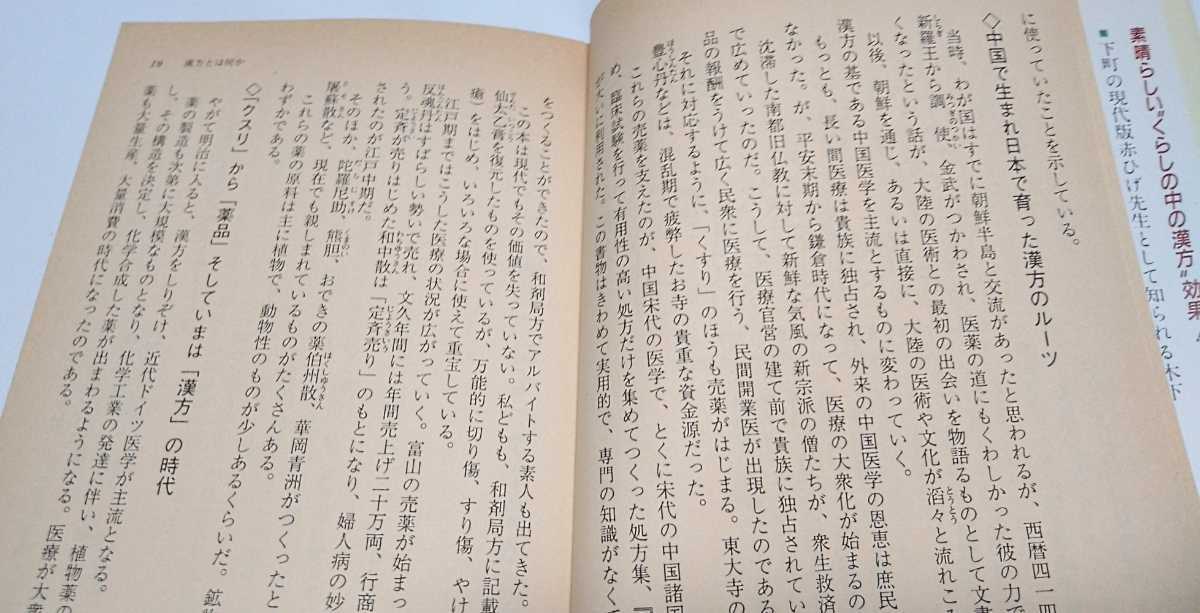 素晴らしい"くらしの中の漢方"効果
■下町の現代版赤ひげ先生として知られる木下
に使っていたことを示している。
◇中国で生まれ日本で育った漢方のルーツ
当時、わが国はすでに朝鮮半島と交流があったと思われるが、西暦四一四
新羅王から調使、金武がつかわされ、医薬の道にもくわしかった彼の力で
くなったという話が、大陸の医術との最初の出会いを物語るものとして文書
以後、朝鮮を通じ、あるいは直接に、大陸の医術や文化が滔々と流れこ
漢方の基である中国医学を主流とするものに変わっていく。
もっとも、長い間医療は貴族に独占され、外来の中国医学の恩恵は庶民
なかった。が、平安末期から鎌倉時代になって、医療の大衆化が始まるの
沈滞した南都旧仏教に対して新鮮な気風の新宗派の僧たちが、衆生救済
で広めていったのだ。こうして、医療官営の建て前で貴族に独占されてい
品の報酬をうけて広く民衆に医療を行う、民間開業医が出現したのであ
それに対応するように、「くすり」のほうも売薬がはじまる。東大寺の
豊心丹などは、混乱期で疲弊したお寺の貴重な資金源だった。
これらの売薬を支えたのが、中国宋代の医学で、とくに宋代の中国諸国
め、臨床試験を行って有用性の高い処方だけを集めてつくった処方集、『
に利用された。この書物はきわめて実用的で、専門の知識がなくて
をつくることができたので、和剤局方でアルバイトする素人も出てきた。
この本は現代でもその価値を失っていない。私どもも、和剤局方に記載
仙太乙膏を復元したものを使っているが、万能的に切り傷、すり傷、やけ
瘡)をはじめ、いろいろな場合に使えて重宝している。
江戸期まではこうした医療の状況が広がっていく。富山の売薬が始まっ
反魂丹はすばらしい勢いで売れ、文久年間には年間売上げ二十万両、行商
う。定斉が売りはじめた和中散は「定斉売り」のもとになり、婦人病の妙
されたのが江戸中期だ。
そのほか、陀羅尼助、熊胆、おできの薬伯州散、華岡青洲がつくったと
屠蘇散など、現在でも親しまれているものがたくさんある。
これらの薬の原料は主に植物で、動物性のものが少しあるくらいだ。鉱
わずかである。
◇「クスリ」から「薬品」そしていまは「漢方」の時代
やがて明治に入ると、漢方をしりぞけ、近代ドイツ医学が主流となる。
薬の製造も次第に大規模なものとなり、化学工業の発達に伴い、植物薬の
し、その構造を決定し、化学合成した薬が出まわるようになる。医療が大衆
薬も大量生産、大量消費の時代になったのである。
19 漢方とは何か